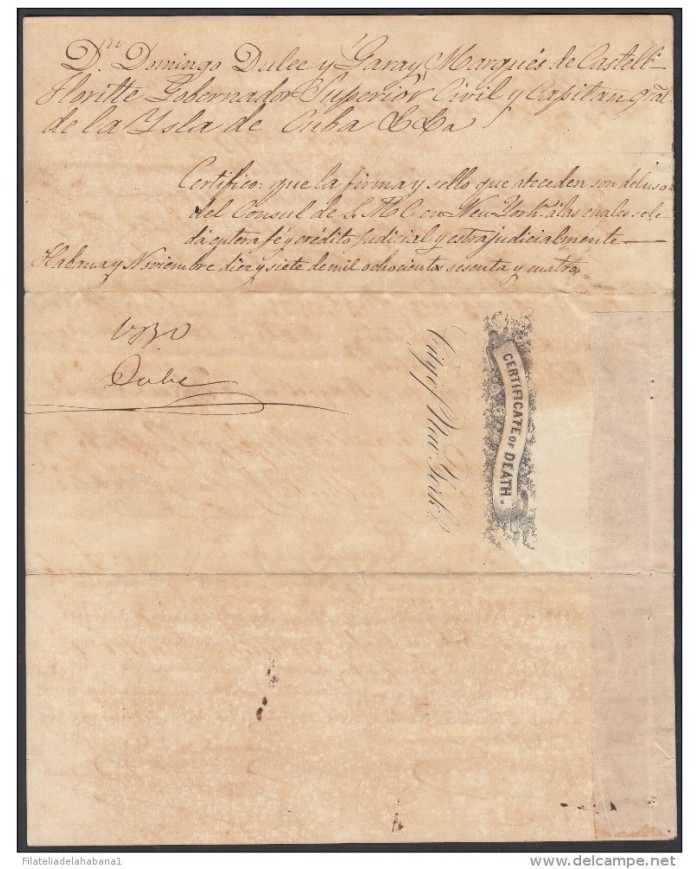 Dⁿ Domingo Dulce y Garay Marqués de Castell-
Floritte Gobernador Superior Civil y Capitan gral
de la Ysla de Cuba &&a
Certifico: que la firma y sello que anteceden son del uso
del Consul de S. M. C en New York. á las cuales se le
dá entera fé y crédito judicial y estrajudicialmente
Habana y Noviembre diez y siete de mil ochocientos sesenta y cuatro,
Dulce
CERTIFICATE OF DEATH.
City of New York
Filateliadelahabana1
delcampe.net